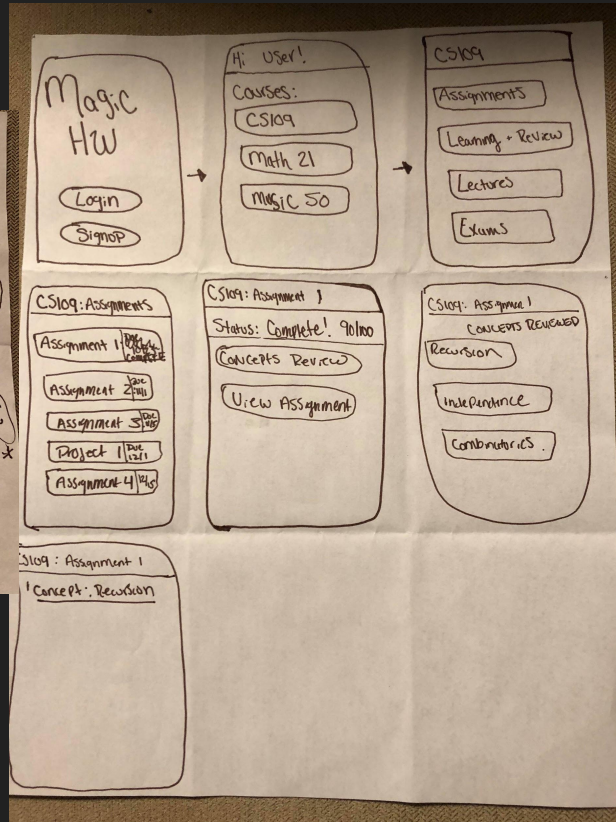 Magic
HW
Login
Signup
Hi User!
Courses:
CS109
Math 21
Music 50
CS109
Assignments
Learning + Review
Lectures
Exams
CS109: Assignments
Assignment 1
Assignment 2 Due
Assignment 3 Due
Project 1 Due 12/1
Assignment 4 12/15
CS109: Assignment 1
Status: Complete! 90/100
Concepts Review
View Assignment
CS109: Assignment 1
CONCEPTS REVIEWED
Recursion
Independence
Combinatorics.
CS109: Assignment 1
Concept: Recursion